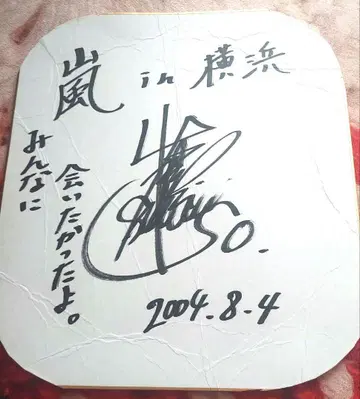 嵐 in 横浜
みんなに
会いたかったよ。
50.
2004.8.4